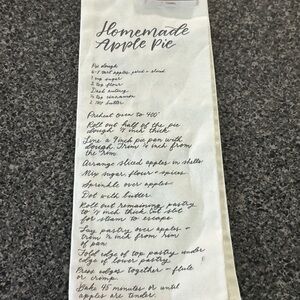 Homemade
Apple Pie
Pie dough
6-7 tart apples, pared + sliced
1 cup sugar
2 tsp flour
Dash nutmeg
½ tsp cinnamon
2 tbs butter
Preheat oven to 400°
Roll out half of the pie
dough ⅛ inch thick
Line a 9 inch pie pan with
dough. Trim ½ inch from
the rim
Arrange sliced apples in shells
Mix sugar, flour + spices
Sprinkle over apples
Dot with butter
Roll out remaining pastry
to ⅛ inch thick. Cut slit
for steam to escape
Lay pastry over apples +
trim ½ inch from rim
of pan
Fold edge of top pastry under
edge of lower pastry
Press edges together - flute
or crimp
Bake 45 minutes or until
apples are tender